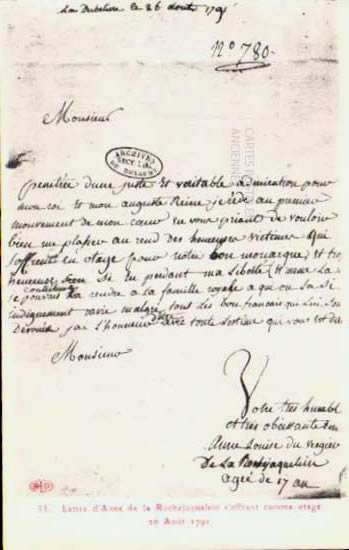 La Dubeliere le 26 Aout 1791
N° 780.
Monsieur
ARCHIVES
penetrée d'une juste et veritable admiration pour
mon roi et mon auguste Reine, je cède au premier
mouvement de mon cœur en vous priant de vouloir
bien me placer au rend des heureuses victimes qui
s'offrent en otage pour notre bon monarque, et trop
heureuse si en perdant ma Liberté
je pouvais la rendre a la famille royale a qui on la si
indignement ravie malgré tous les bons francais qui lui son
Devoués j'ai l'honneur d'etre toute
Monsieur
Votre très humble
et très obeissante
Anne Louise du vergier
De La Rochejaquelein
agée de 17 an
CARTES
ANCIENNES
31. Lettre d'Anne de la Rochejaquelein s'offrant comme otage
26 Août 1791